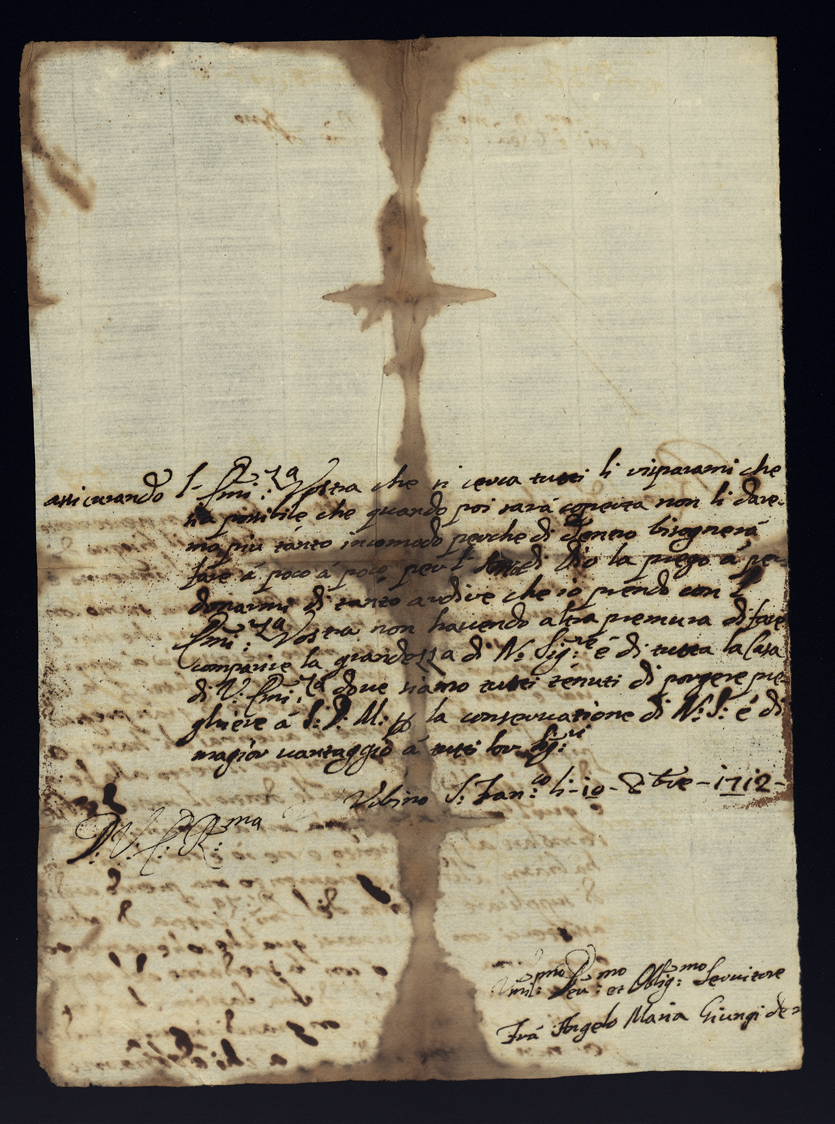 assicurando l'Emi:za Vostra che si cerca tutti li risparami che
sia possibile, che quando poi sarà coperta non li dare-
mo più tanto incomodo perche di dentro bisognerà
fare à poco à poco per l' di Dio la prego à per-
donarmi di tanto ardire che io prendo con l'
Emi:za Vostra non havendo altra premura di fare
comparire la grandezza di N: Sig:re é di tutta la Casa
di V: Emi:za dove siamo tutti tenuti di porgere pre-
ghiere à S: D: M: la conservatione di N: S: é di
magior vantaggio à tutti lor Sig:ri
Urbino S: Fran:co li-10-8bre-1712-
D: V: E: R:ma
Umil:mo Dev:mo et Oblig:mo Servitore
Frà Angelo Maria Giungi